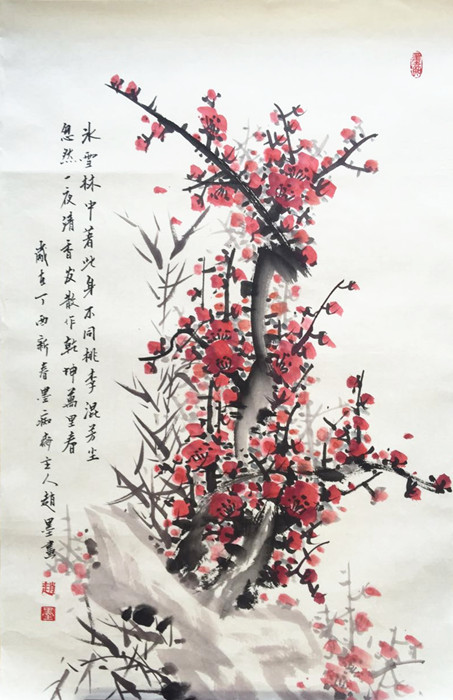 氷雪林中著此身不同桃李混芳尘
忽然一夜清香发散作乾坤萬里春
歲在丁酉新春墨痴齋主人趙墨畫
趙
墨